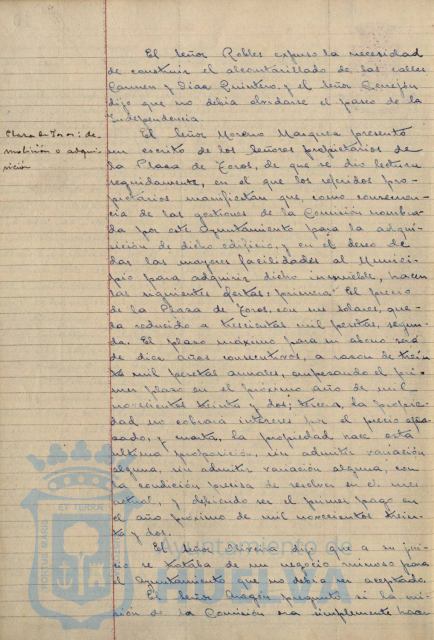 El Señor Robles expuso la necesidad
de construir el alcantarillado de las calles
Carmen y Díaz Quintero, y el Señor Cerrejón
dijo que no debía olvidarse el paseo de la
Independencia.
Plaza de Toros: de-
molición o adqui-
sición
El Señor Moreno Marquez presentó
un escrito de los Señores propietarios de
la Plaza de Toros, de que se dio lectura
seguidamente, en el que los referidos pro-
pietarios manifiestan que, como consecuen-
cia de las gestiones de la Comisión nombra-
da por este Ayuntamiento para la adqui-
sición de dicho edificio, y en el deseo de
dar las mayores facilidades al Munici-
pio para adquirir dicho inmueble, hacen
las siguientes ofertas: primera: El precio
de la Plaza de Toros, con sus solares, que-
da reducido a trescientas mil pesetas, segun-
da. El plazo máximo para su abono será
de diez años consecutivos, a razón de trein-
ta mil pesetas anuales, empezando el pri-
mer plazo en el próximo año de mil
novecientos treinta y dos; tercera, la propie-
dad no cobrará intereses por el precio apla-
zado, y cuarta, la propiedad hace esta
última proposición, sin admitir variación
alguna, sin admitir variación alguna, con
la condición precisa de resolver en el mes
actual, y debiendo ser el primer pago en
el año próximo de mil novecientos trein-
ta y dos.
El Señor Oliveira dijo que a su jui-
cio se trataba de un negocio ruinoso para
el Ayuntamiento que no debía ser aceptado.
El Señor Aragón preguntó si la mi-
sión de la Comisión era simplemente hacer
Ayuntamiento de